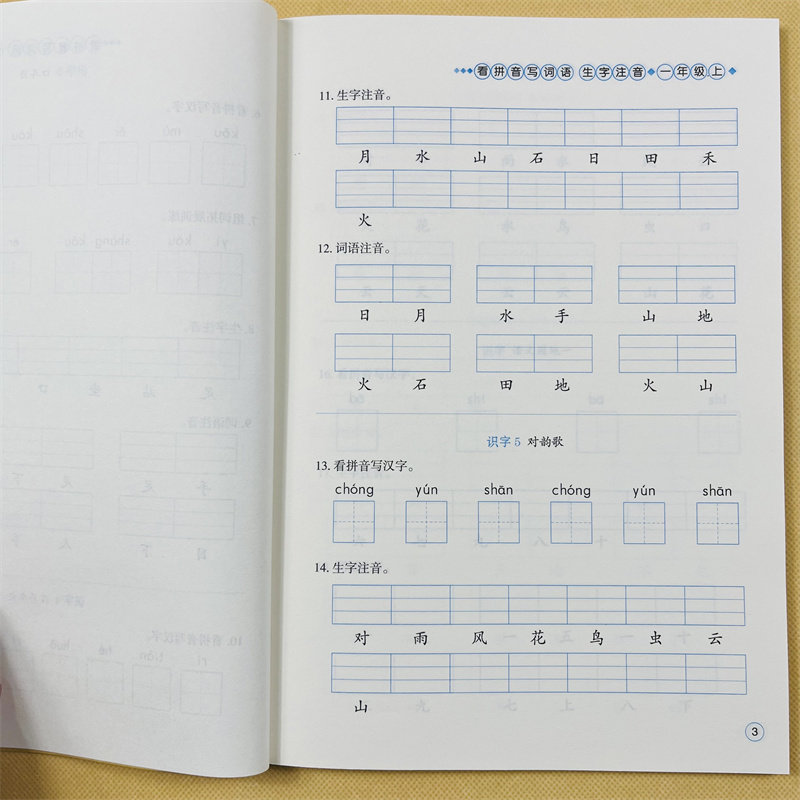 看拼音写词语 生字注音 一年级上
11. 生字注音。
月 水 山 石 日 田 禾
火
12. 词语注音。
日 月 水 手 山 地
火 石 田 地 火 山
识字 5 对韵歌
13. 看拼音写汉字。
chóng yún shān chóng yún shān
14. 生字注音。
对 雨 风 花 鸟 虫 云
山
3